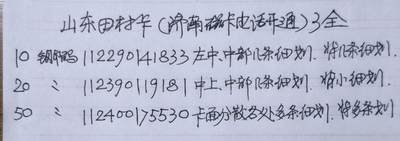 山东田村华（济南磁卡电话开通）3全
10 铜牌码 112290141833 左中.中部几条细划.背几条细划.
20 〃 112390119181 中上.中部小条细划.背小细划.
50 〃 112400175530 卡面分散各处多条细划.背多条划